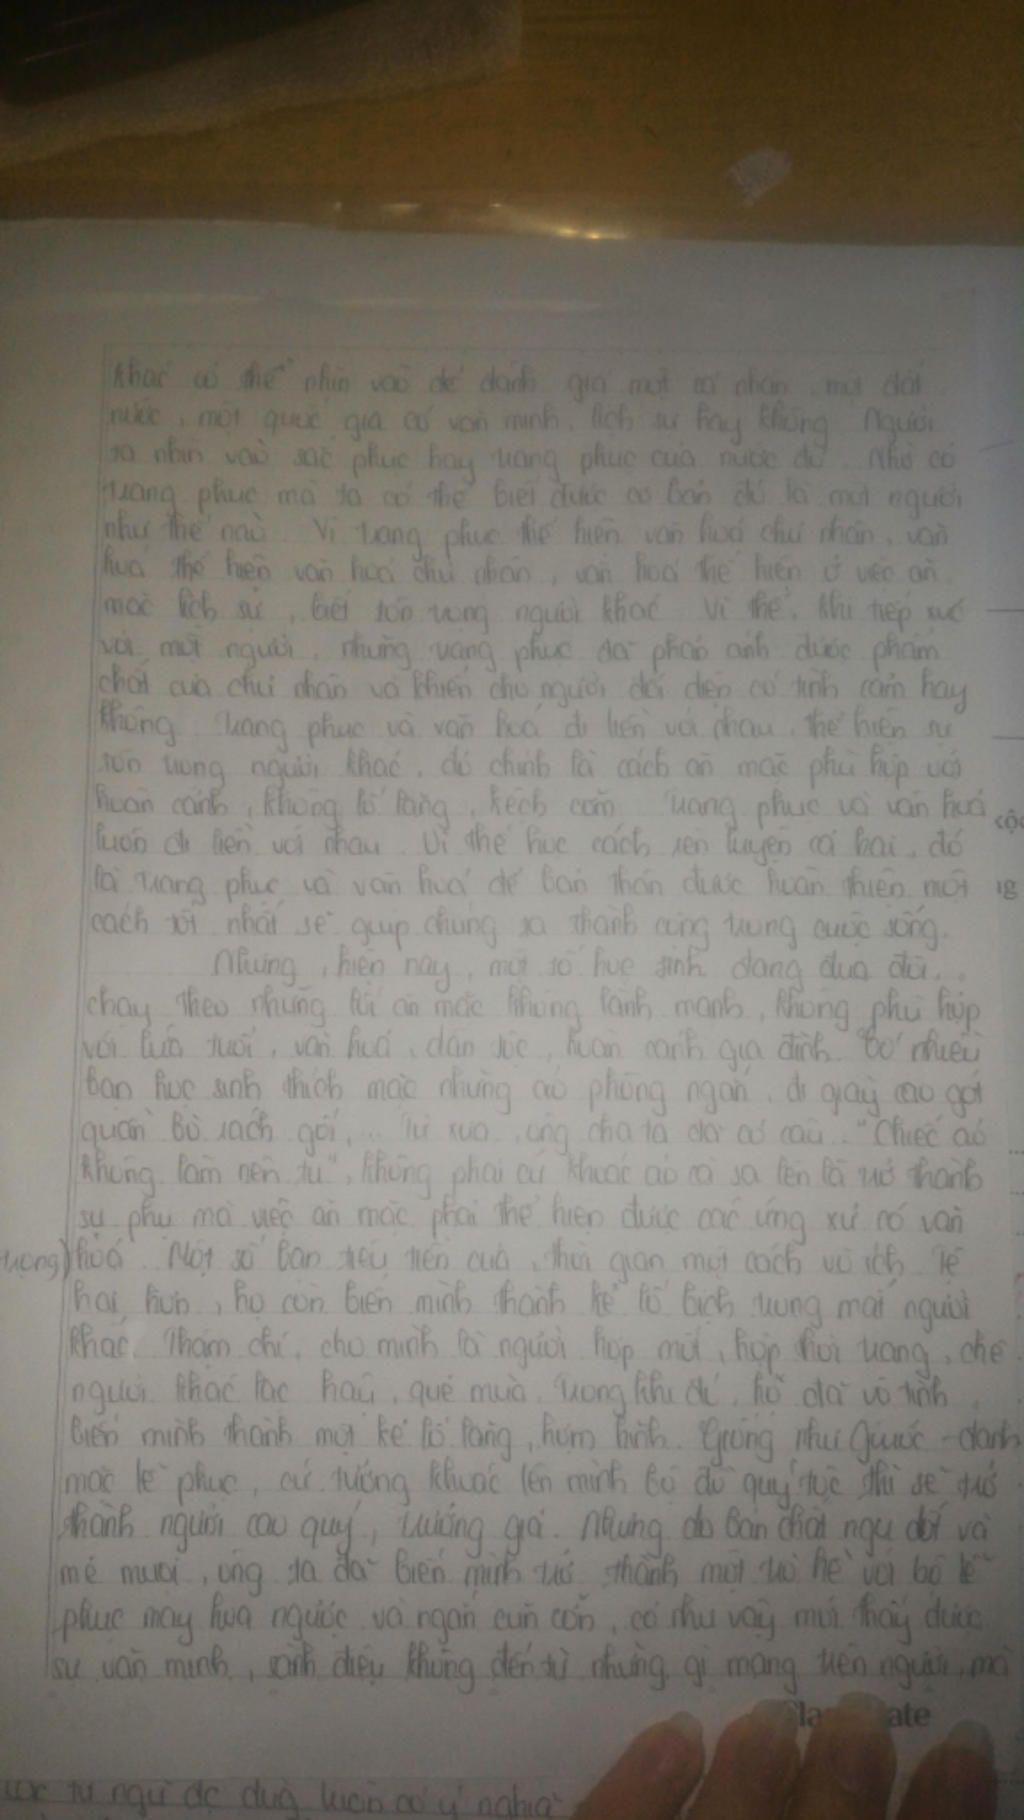 khác có thể nhìn vào để đánh giá một cá nhân, một đất
nước, một quốc gia có văn minh, lịch sự hay không. Người
ta nhìn vào sắc phục hay trang phục của nước đó. Nhờ có
trang phục mà ta có thể biết được cơ bản đó là một người
như thế nào. Vì trang phục thể hiện văn hoá chủ nhân, văn
hoá thể hiện văn hoá chủ nhân, văn hoá thể hiện ở việc ăn
mặc lịch sự, biết tôn trọng người khác. Vì thế, khi tiếp xúc
với một người, những trang phục đã phản ánh được phẩm
chất của chủ nhân và khiến cho người đối diện có tình cảm hay
không. Trang phục và văn hoá đi liền với nhau, thể hiện sự
tôn trọng người khác, đó chính là cách ăn mặc phù hợp với
hoàn cảnh, không lố lăng, kệch cỡm. Trang phục và văn hoá
luôn đi liền với nhau. Vì thế học cách rèn luyện cả hai, đó
là trang phục và văn hoá để bản thân được hoàn thiện một
cách tốt nhất sẽ giúp chúng ta thành công trong cuộc sống.
Nhưng, hiện nay, một số học sinh đang đua đòi,
chạy theo những lối ăn mặc không lành mạnh, không phù hợp
với lứa tuổi, văn hoá, dân tộc, hoàn cảnh gia đình. Có nhiều
bạn học sinh thích mặc những áo phông ngắn, đi giày cao gót
quần bò rách gối,... Từ xưa, ông cha ta đã có câu: "Chiếc áo
không làm nên tu", không phải cứ khoác áo cà sa lên là trở thành
sư phụ mà việc ăn mặc phải thể hiện được các ứng xử có văn
hoá. Một số bạn tiêu tiền của, thời gian một cách vô ích. Tệ
hại hơn, họ còn biến mình thành kẻ lố bịch trong mắt người
khác. Thậm chí, cho mình là người hợp mốt, hợp thời trang, chê
người khác lạc hậu, quê mùa. Trong khi đó, họ đã vô tình
biến mình thành một kẻ lố lăng, hợm hĩnh. Giống như Giuốc-đanh
mặc lễ phục, cứ tưởng khoác lên mình bộ đồ quý tộc thì sẽ trở
thành người cao quý, trưởng giả. Nhưng do bản chất ngu dốt và
mê muội, ông ta đã biến mình trở thành một trò hề với bộ lễ
phục may hoa ngược và ngắn cũn cỡn, có như vậy mới thấy được
sự văn minh, sành điệu không đến từ những gì mang trên người, mà
từ ngữ đc dùg luôn có ý nghĩa